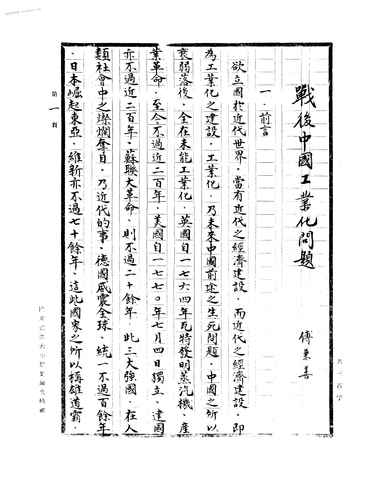 戰後中國工業化問題
傅秉善
一．前言
欲立國於近代世界．當有近代之經濟建設．而近代之經濟建設．即
為工業化之建設．工業化．乃未來中國前途之生死問題．中國之所以
衰弱落後．全在未能工業化．英國自一七六四年瓦特發明蒸汽機．產
業革命．至今不過近二百年．美國自一七七〇年七月四日獨立．建國
亦不過近二百年．蘇聯大革命．則不過二十餘年．此三大強國．在人
類社會中之燦爛奪目．乃近代的事．德國威震全球．統一不過百餘年
．日本崛起東亞．維新亦不過七十餘年．這此國家之所以稱雄道霸．
第一頁